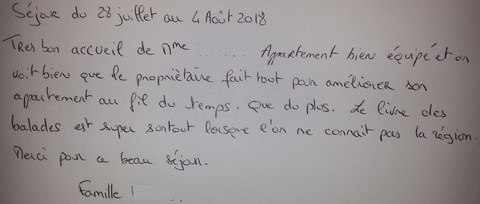 Séjour du 28 juillet au 4 Août 2018
Tres bon accueil de Mme ........ Appartement bien équipé et on
voit bien que le propriétaire fait tout pour améliorer son
apartement au fil du temps. Que du plus. Le livre des
balades est super surtout lorsque l'on ne connait pas la région.
Merci pour ce beau séjour.
Famille